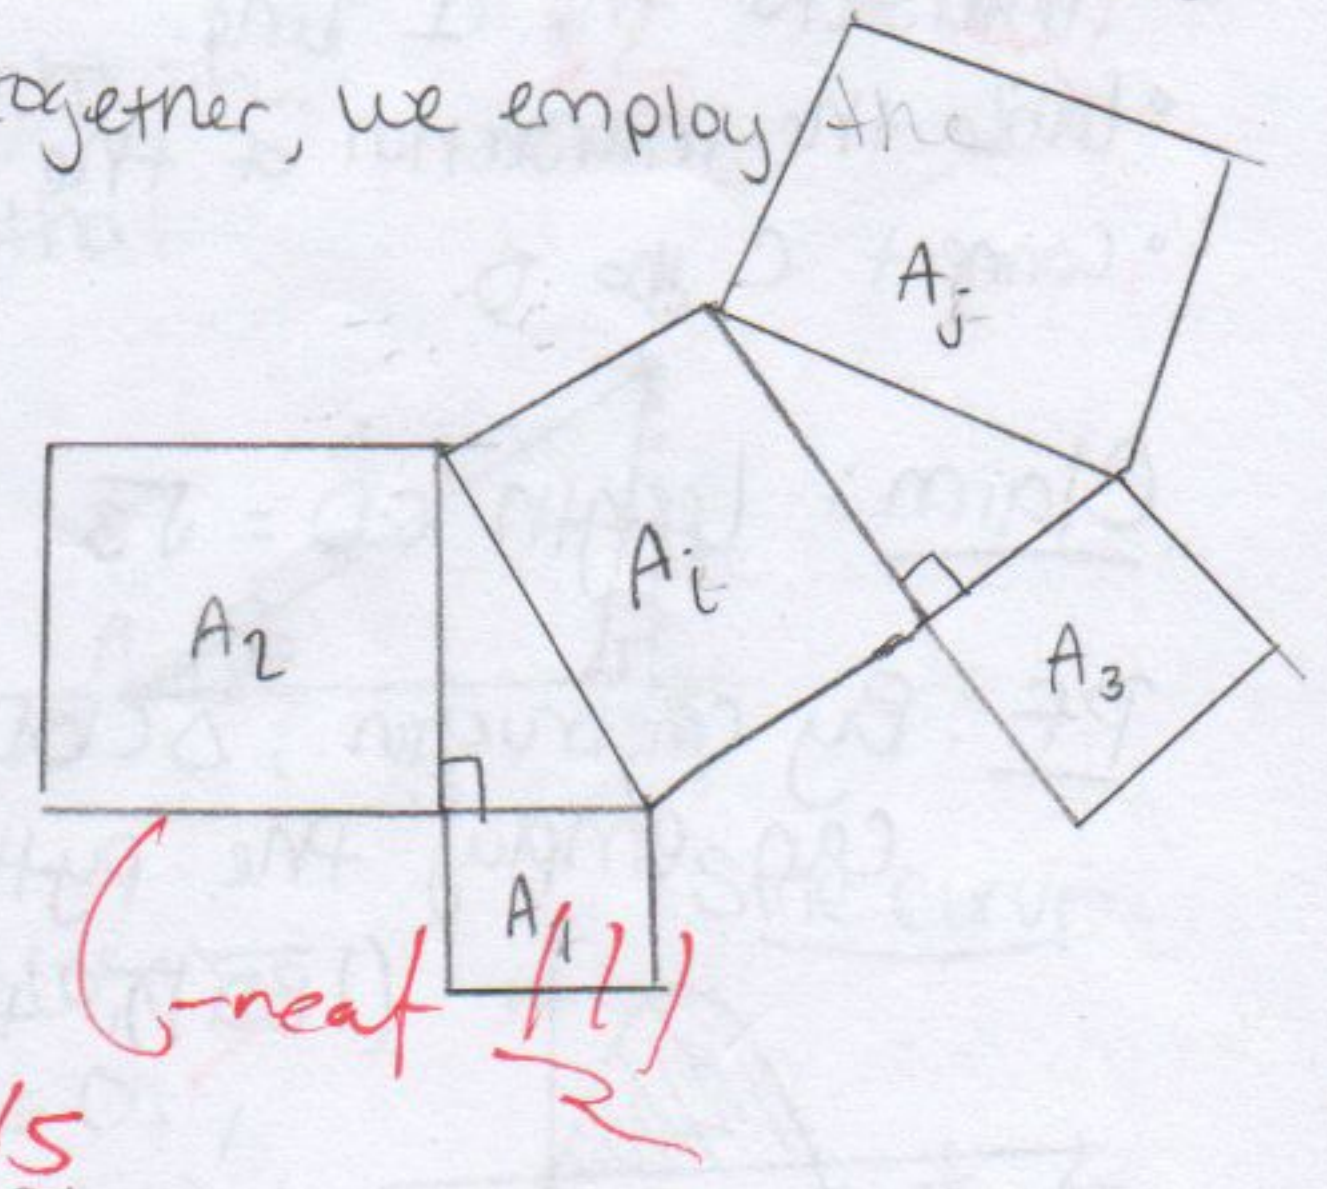 together, we employ the
A_j
A_i
A_2
A_3
A_1
neat !!!
/5